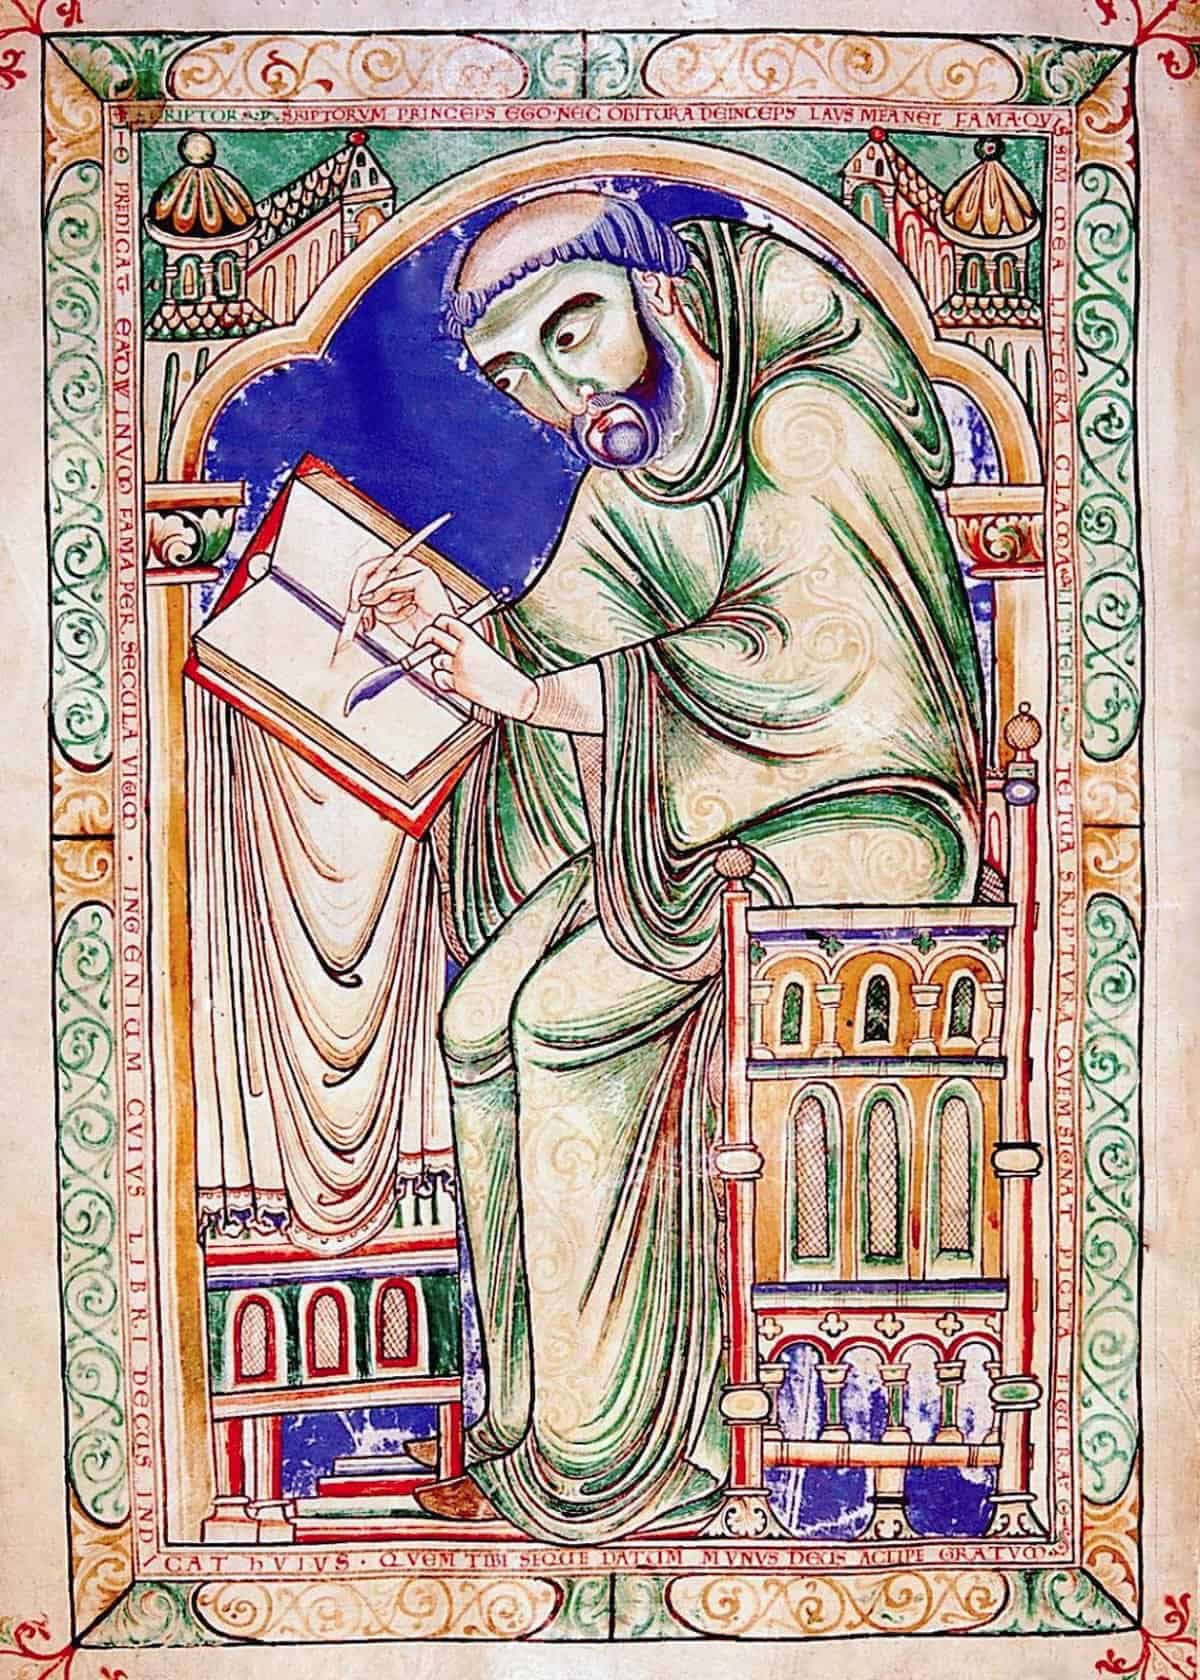 SRIPTORVM PRINCEPS EGO·NEC OBITURA DEINCEPS LAVS MEA NEC FAMA·QVI
S SIM MEA LITTERA CLAMA LITTERA TE TUA SRIPTVRA QVEM SIGNAT PICTA FIGURA
PREDICAT EADWINVM FAMA PER SECULA VIVVM · INGENIUM CVIVS LIBRI DECUS IND
ICAT HVIVS · QVEM TIBI SEQUE DATUM MVNVS DEUS ACCIPE GRATVM